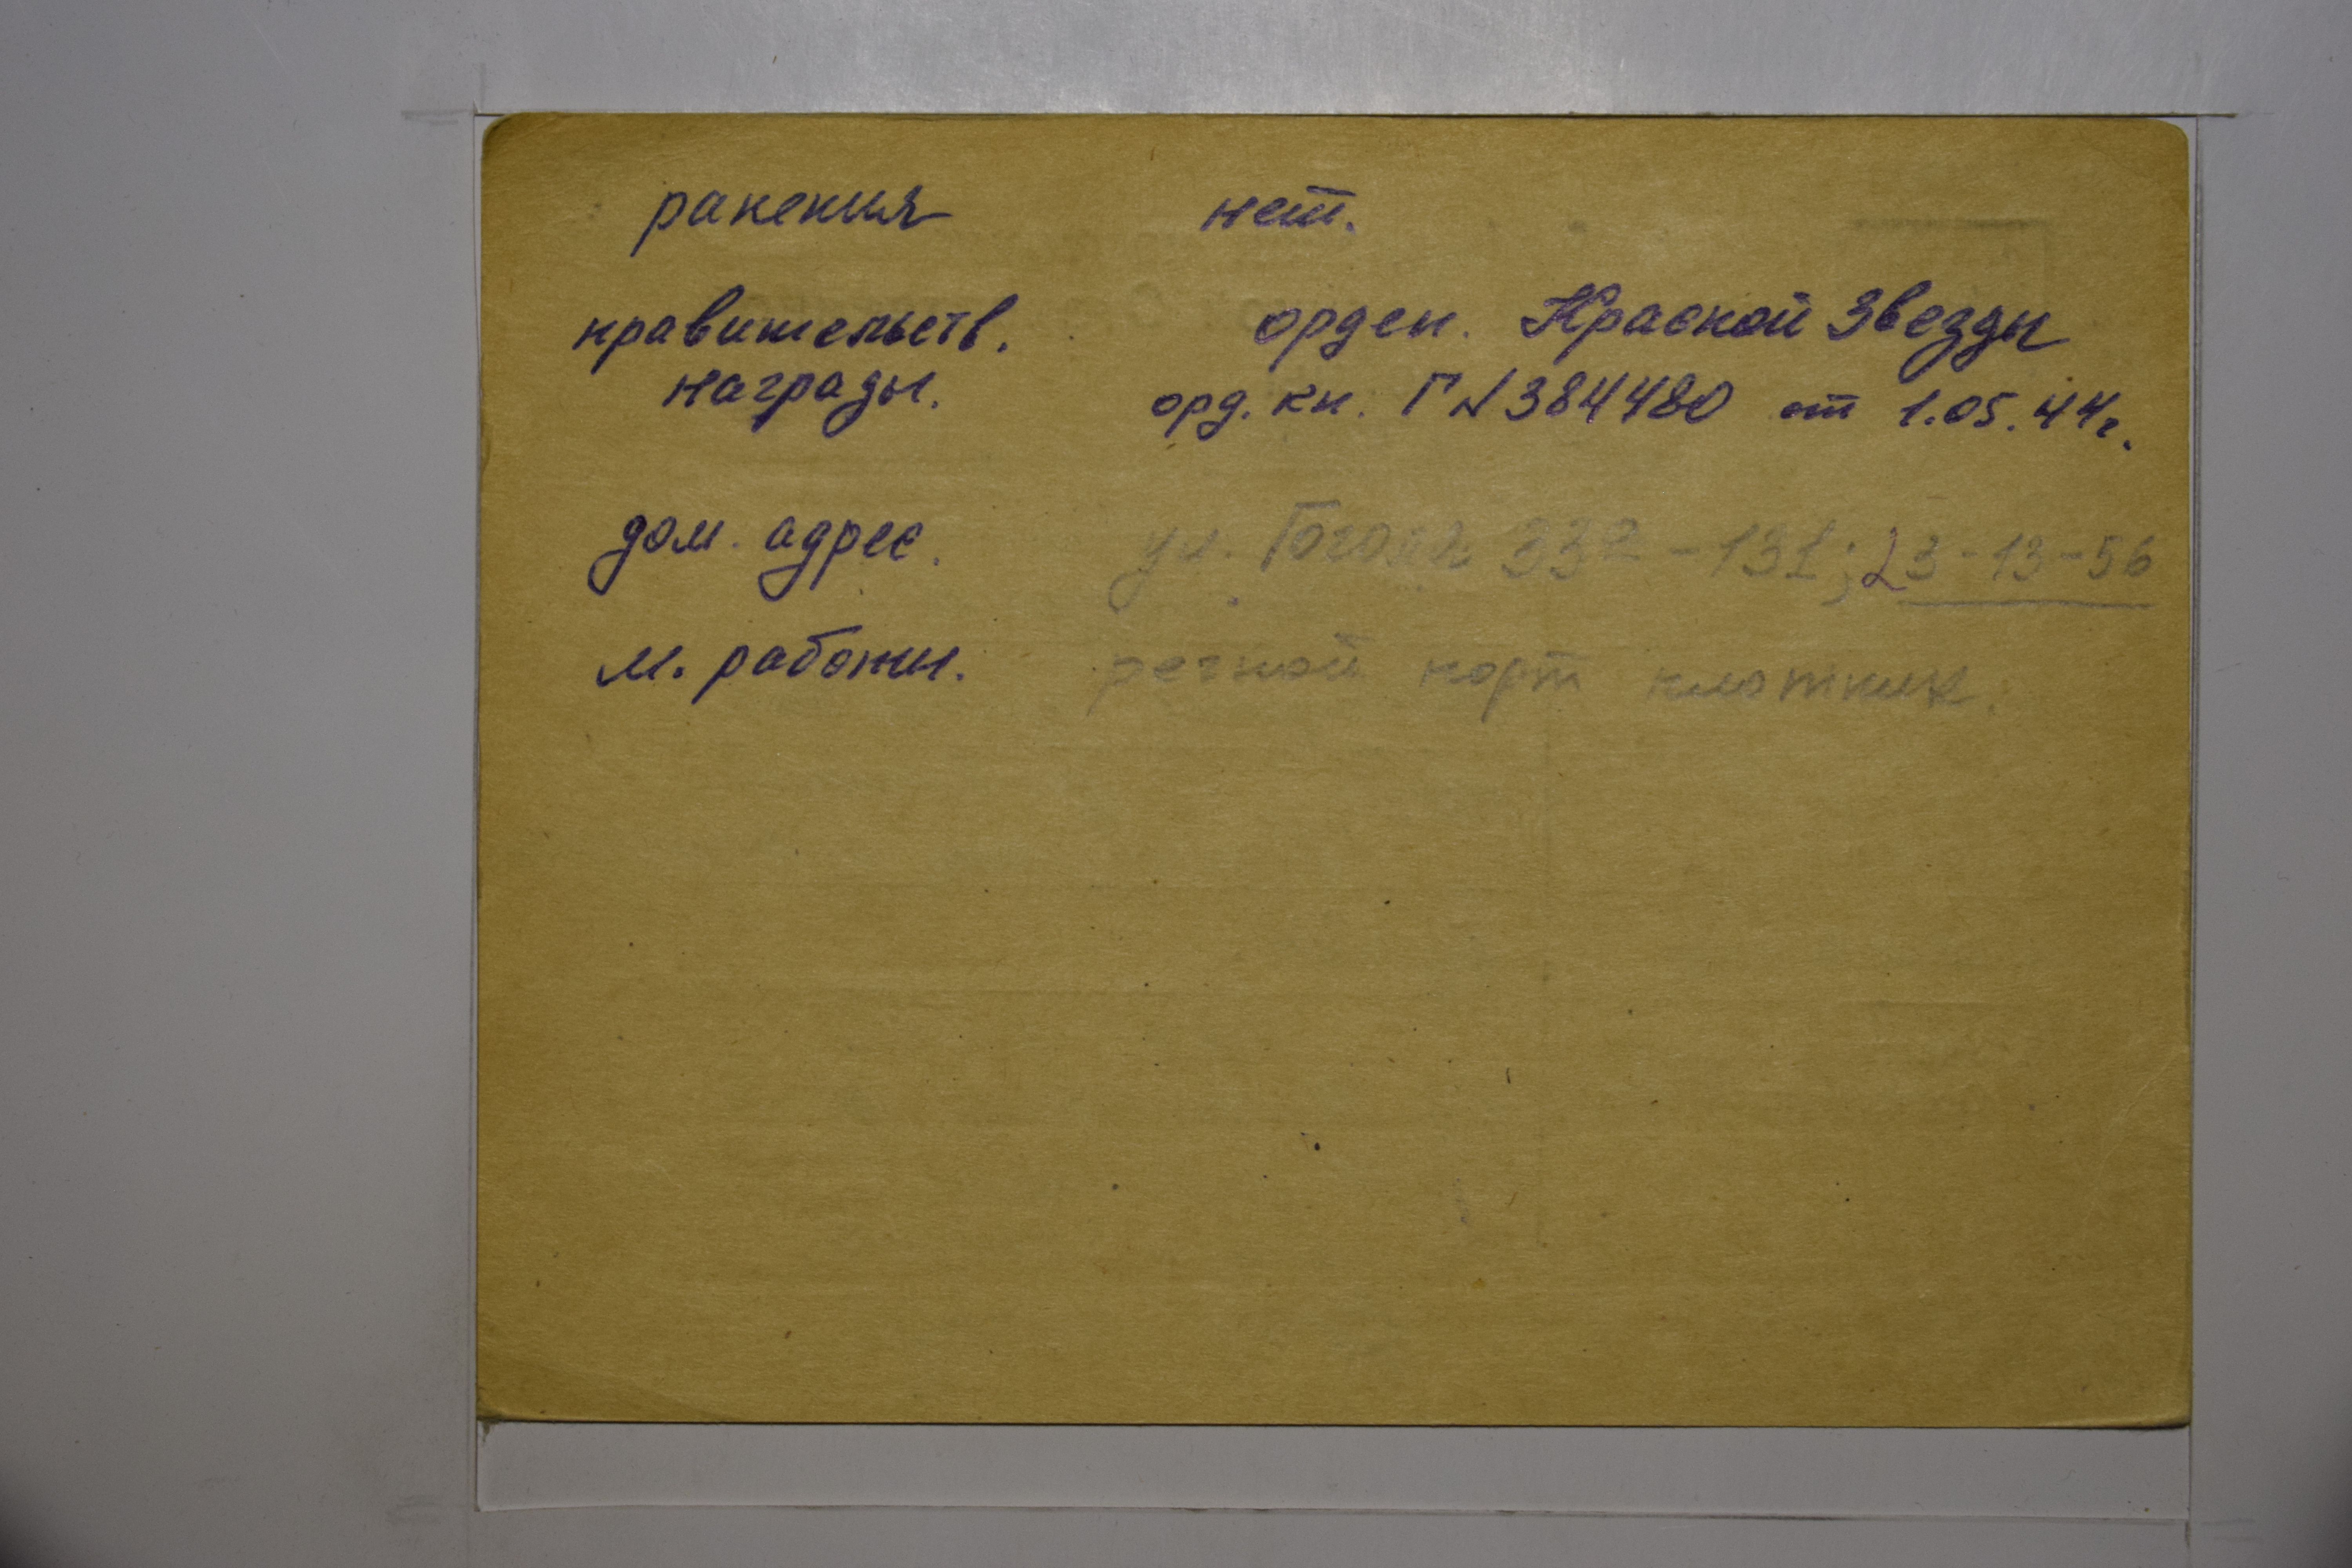 ранения нет.
правительств. орден. Красной Звезды
награды. орд. кн. Г №384480 от 1.05.44г.
дом. адрес. ул. Гоголя 332-131; 23-13-56
м. работы. речной порт плотник.